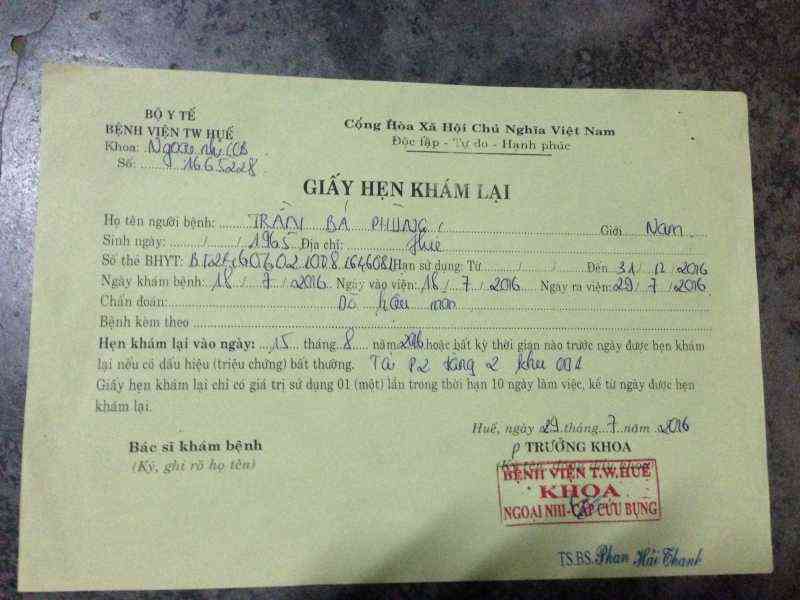 BỘ Y TẾ
BỆNH VIỆN TW HUẾ
Khoa: Ngoại nhi CCB
Số: 1665228
Cộng Hòa Xã Hội Chủ Nghĩa Việt Nam
Độc lập - Tự do - Hạnh phúc
GIẤY HẸN KHÁM LẠI
Họ tên người bệnh: TRẦN BÁ PHÙNG Giới Nam
Sinh ngày: / / 1965 Địa chỉ: Huế
Số thẻ BHYT: Hạn sử dụng: Từ Đến 31 / 12 / 2016
Ngày khám bệnh: 18 / 7 / 2016 Ngày vào viện: 18 / 7 / 2016 Ngày ra viện: 29 / 7 / 2016
Chẩn đoán: Dò hậu môn
Bệnh kèm theo
Hẹn khám lại vào ngày: 15 tháng 8 năm 2016 hoặc bất kỳ thời gian nào trước ngày được hẹn khám
lại nếu có dấu hiệu (triệu chứng) bất thường. Tại P2 tầng 2 khu
Giấy hẹn khám lại chỉ có giá trị sử dụng 01 (một) lần trong thời hạn 10 ngày làm việc, kể từ ngày được hẹn
khám lại.
Huế, ngày 29 tháng 7 năm 2016
Bác sĩ khám bệnh
(Ký, ghi rõ họ tên)
P TRƯỞNG KHOA
BỆNH VIỆN T.W.HUẾ
KHOA
NGOẠI NHI-CẤP CỨU BỤNG
TS.BS. Phan Hải Thanh